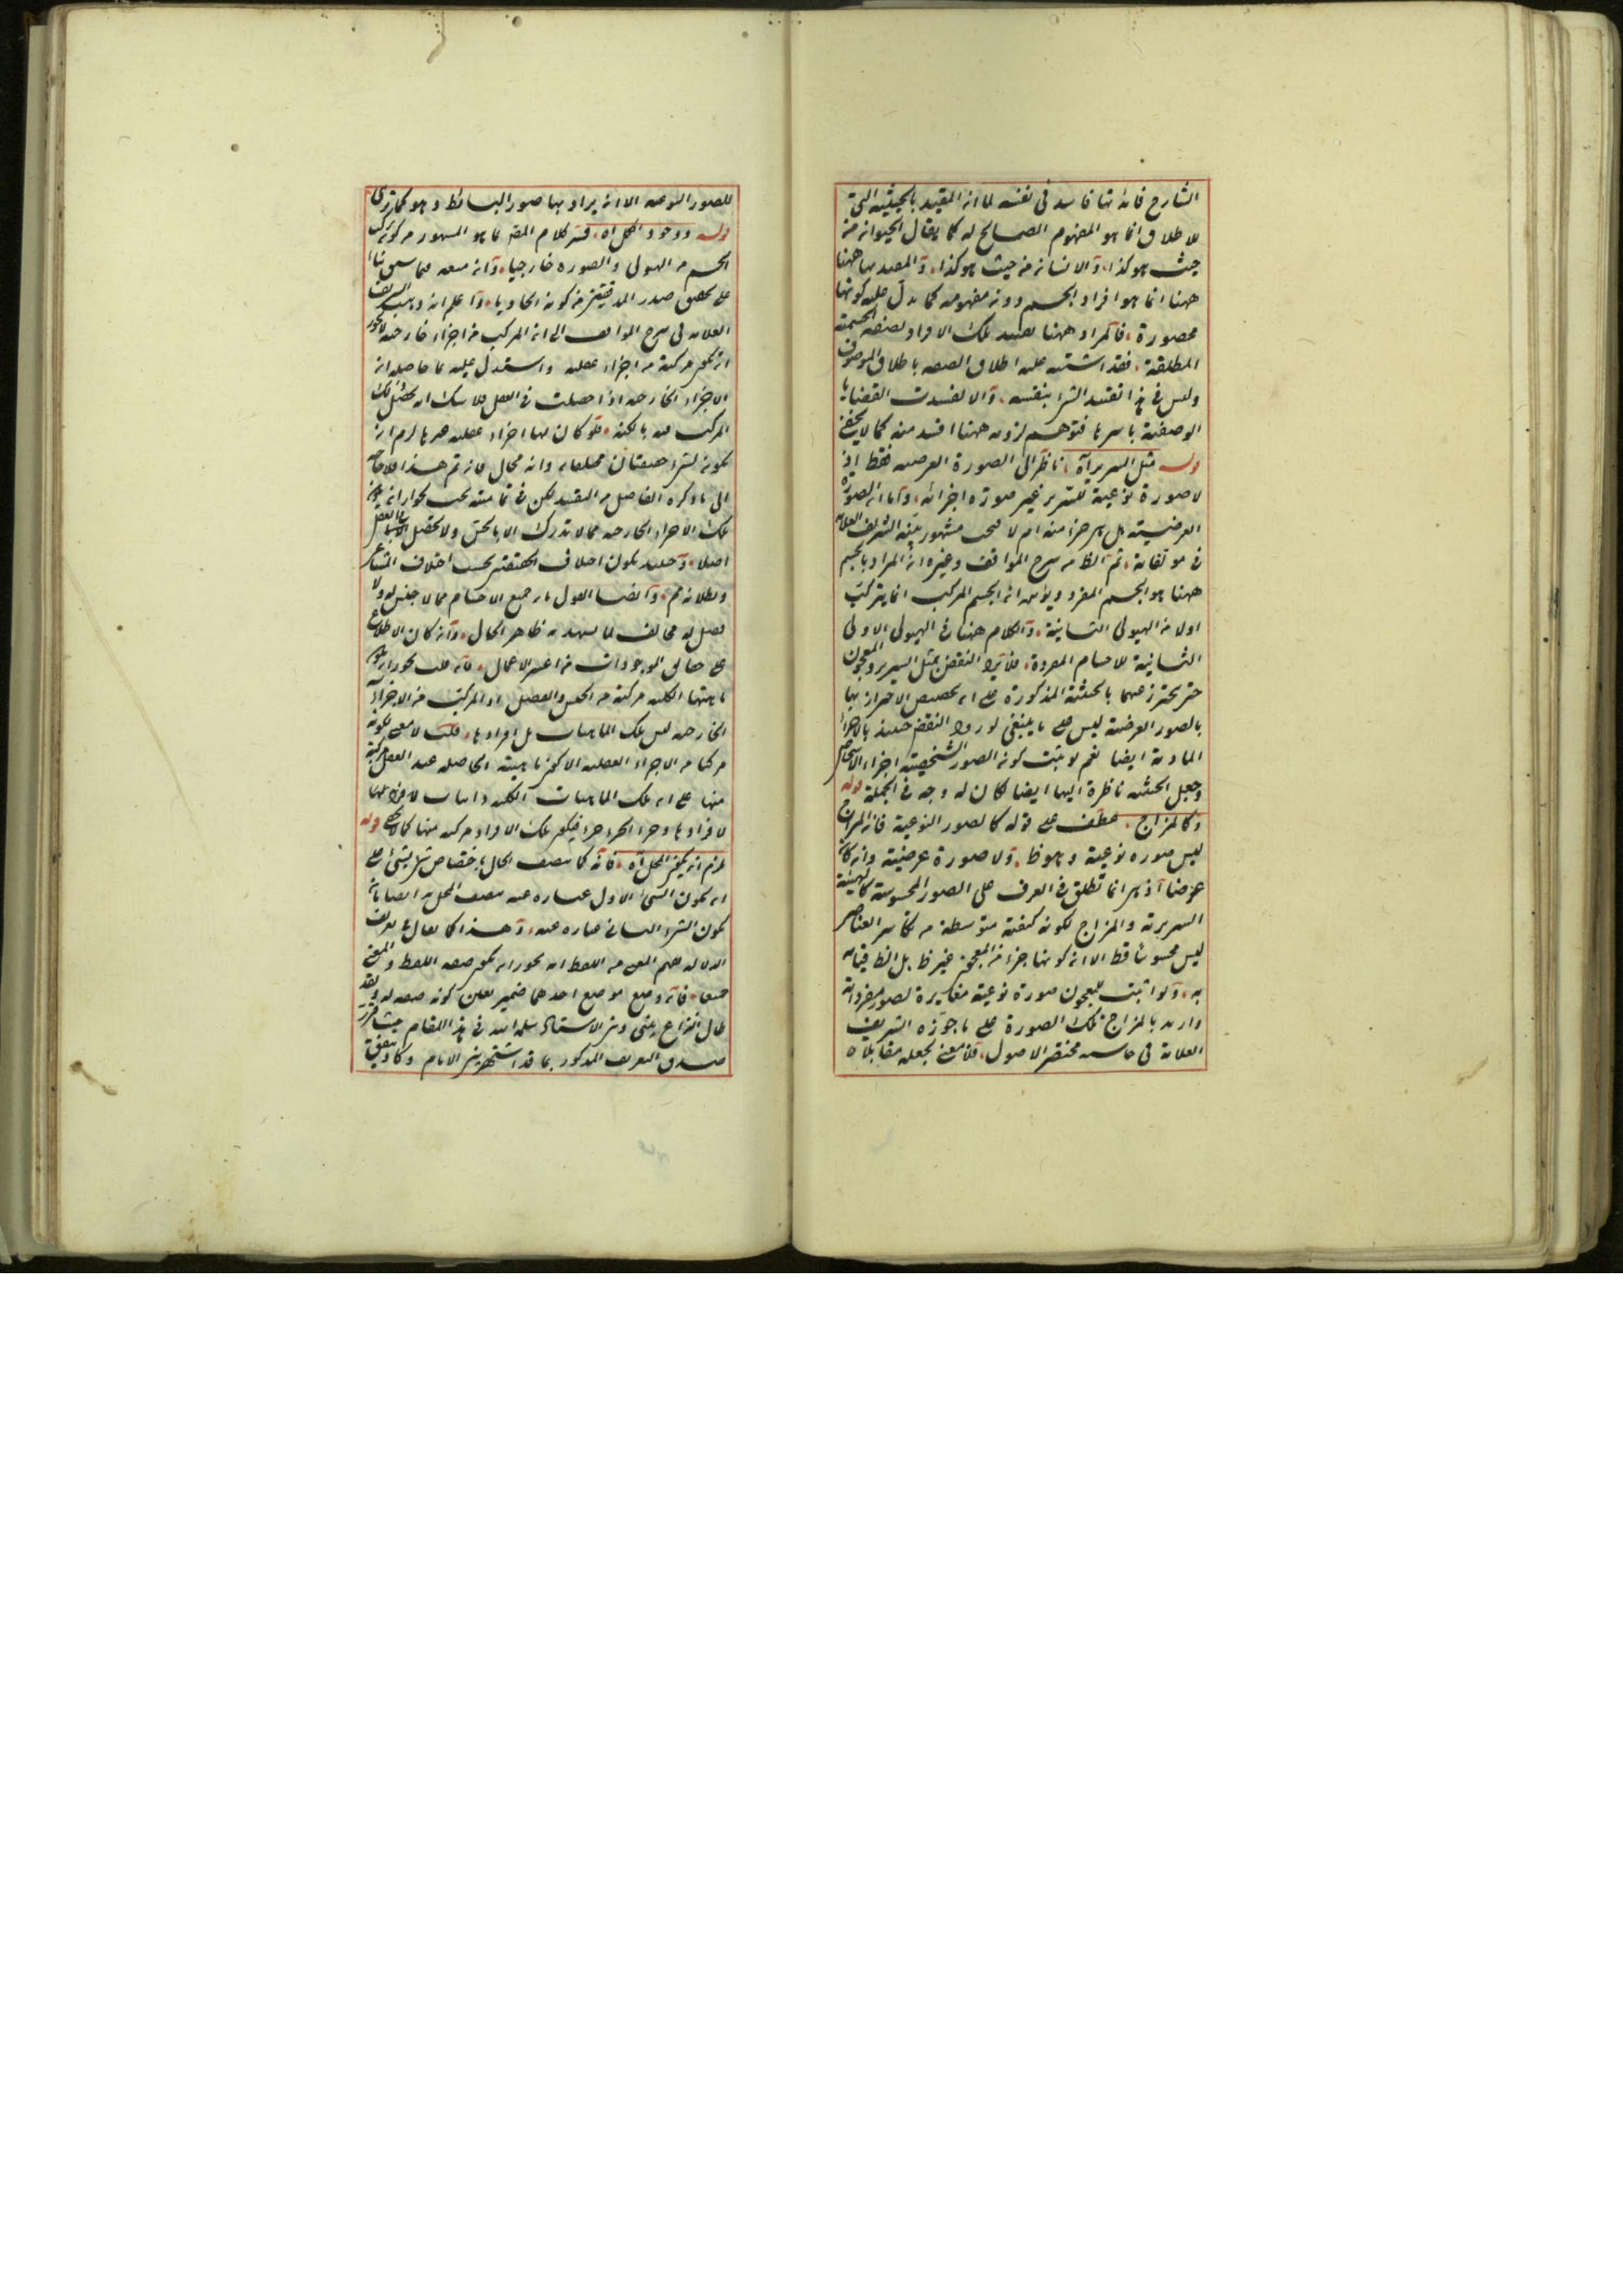 الشارح فانه تها فاسد فى نفسه لما ان المقيد بالحيثية التى
للاطلاق انما هو المفهوم الصالح له كما يقال الحيوان من
حيث هو كذا والانسان من حيث هو كذا والمقيد بها ههنا
ههنا انما هو افراد الجسم دون مفهومه كما يدل عليه كونها
محصورة فالمراد ههنا تقييد تلك الافراد بصفة الجسمية
المطلقة فقد اشتبه عليه اطلاق الصفة باطلاق الموصوف
وليس فى هذا تقييد الشئ بنفسه والا لفسدت القضايا
الوصفية باسرها فتوهم لزومه ههنا افسد منه كما لا يخفى
قوله مثل السرير آه ناظر الى الصورة العرضية فقط اذ
لا صورة نوعية للسرير غير صورة اجزائه واما ان الصورة
العرضية هل هى جزء منه ام لا فبحث مشهور بين الشريف العلامة
فى مؤلفاته ثم الظ من شرح المواقف وغيره ان المراد بالجسم
ههنا هو الجسم المفرد ان الجسم المركب انما يتركب
اولا من الهيولى الثانية والكلام ههنا فى الهيولى الاولى
الثانية للاجسام المفردة فلا يرد النقض بمثل السرير والمعجون
حتى يحترز عنهما بالحيثية المذكورة على ان تخصيص الاحتراز بها
بالصور العرضية ليس على ما ينبغى لورود النقض حينئذ بالاجزاء
المادية ايضا نعم لو ثبت كون الصور الشخصية اجزاء الاشخاص
وجعل الحيثية ناظرة اليها ايضا لكان له وجه فى الجملة قوله
وكالمزاج عطف على قوله كالصور النوعية فان المزاج
ليس صورة نوعية وهو ظ ولا صورة عرضية وان كان
عرضا اذ هى انما تطلق فى العرف على الصور المحسوسة كالهيئة
السريرية والمزاج لكونه كيفية متوسطة من تكاسر العناصر
ليس محسوسا قط الا ان كونها جزء من المعجون غير ظ بل الظ قيامه
به ولو اثبت للمعجون صورة نوعية مغايرة لصور مفرداته
واريد بالمزاج تلك الصورة على ما جوزه الشريف
العلامة فى حاشية مختصر الاصول فلا معنى لجعله مقابلا
للصور النوعية الا ان يراد بها صور البسائط وهو كما ترى
قوله ووجود الكل آه فسر كلام المص بما هو المشهور من كون تركب
الجسم من الهيولى والصورة خارجيا وانه فيما سبق بناء
على تحقيق صدر المدققين من كونه واعلم انه ذهب الشريف
العلامة فى شرح المواقف الى ان المركب من اجزاء خارجية لا يجوز
ان يكون مركبة من اجزاء عقلية واستدل عليه بما حاصله ان
الاجزاء الخارجية اذا حصلت فى العقل فلا شك انه يحصل ذلك
المركب فيه بالكنه فلو كان لها اجزاء عقلية غيرها لزم ان
يكون لشئ حقيقتان مختلفتان وانه محال فان تم هذا فلا حاجة
الى ما ذكره الفاضل من التقييد لكن فى تماميته بحث لجواز ان يكون
تلك الاجزاء الخارجية مما لا تدرك الا بالحس ولا تحصل فى العقل
اصلا وحينئذ يكون اختلاف الحقيقتين بحسب اختلاف المشاعر
وبطلانه مم وايضا القول بان جميع الاجسام مما لا جنس له ولا
فصل له مخالف لما يشهد به ظاهر الحال وان كان الاطلاع
على حقائق الموجودات من اعسر الاعمال فان قلت يجوز ان يكون
ماهيتها الكلية مركبة من الجنس والفصل اذ المركب من الاجزاء
الخارجية ليس تلك الماهيات بل افرادها قلت لا معنى لكونه
مركبا من الاجزاء العقلية الا كون ماهيته الحاصلة عند العقل مركبة
منها على ان تلك الماهيات الكلية ذاتيات لافرادها
لافرادها وجزء الجزء جزء فيكون تلك الافراد مركبة منها كما لا يخفى قوله
لزم ان يكون المحل آه فانه كما يتصف الحال باختصاص شئ بشئ على
ان يكون الشئ الاول عبارة عنه يتصف المحل به ايضا بان
يكون الشئ الثانى عبارة عنه وهذا كما يقال فى تعريف
الدلالة فهم المعنى من اللفظ انه يجوز ان يكون صفة اللفظ والمعنى
جميعا فانه وضع موضع احدهما ضمير تعين كونه صفة له ولقد
طال النزاع بينى وبين الاستاد سلمه الله فى هذا المقام حيث قرر
صدق التعريف المذكور بما قد اشتهر بين الانام وكان يتفق